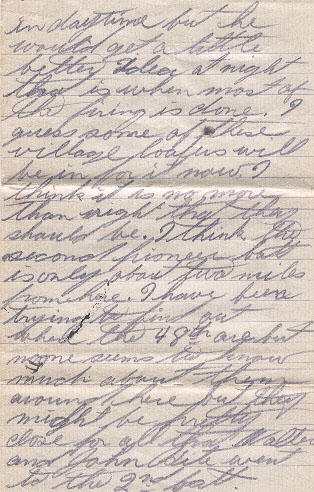 in daytime but he
would get a little
better idea at night
that is when most of
the firing is done. I
guess some of these
village loafers will
be in for it now. I
think it is no more
than right that they
should be. I think the
second pioneer batt
is only about two miles
from here. I have been
trying to find out
where the 48th are but
no one seems to know
much about them
around here but they
might be pretty
close for all that. Walter
and John went
to the 2nd batt.